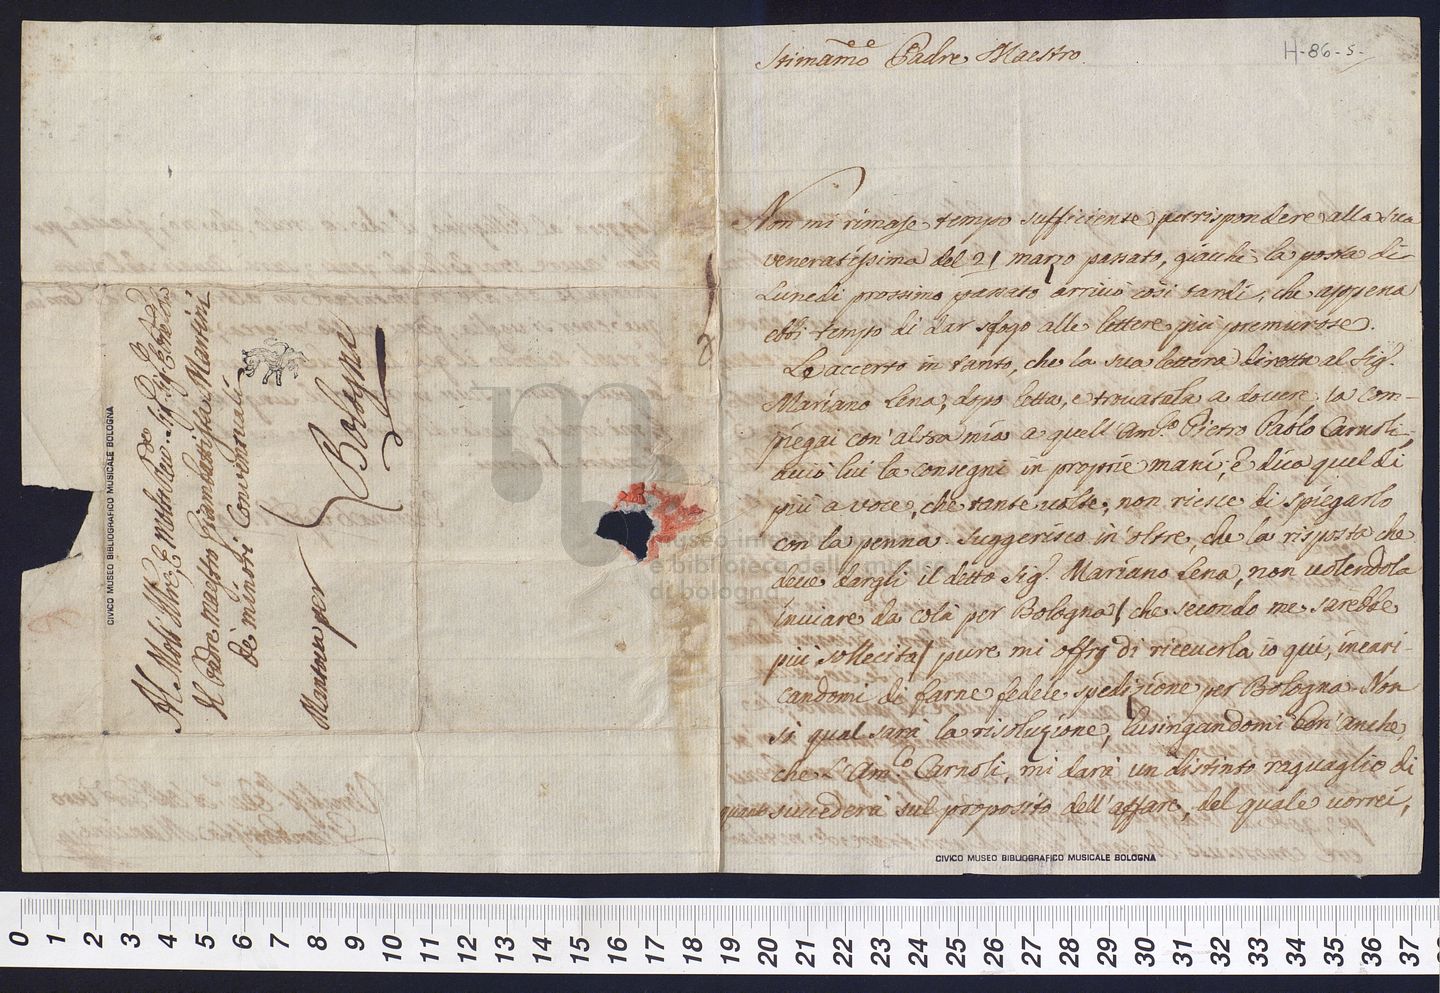 Stimamo Padre Maestro
H-86-5-
Non mi rimase tempo sufficiente per rispondere alla sua
veneratissima del 21 marzo passato, giachi la posta di
Lunedi prossimo passato arrivò così tardi, che appena
ebbi tempo di dar sfogo alle lettere più premurose.
Lo accerto in tanto, che la sua lettera diretta al Sig.
Mariano Lena, dopo letta, e trovatala a dovere, la com-
piegai con altra mia a quell' Amo. Pietro Paolo Carnoli,
acciò lui la consegni in proprie mani, e dica quel di
più a voce, che tante volte, non riesce di spiegarlo
con la penna. Suggerisco in oltre, che la risposta che
deve dargli il detto Sig. Mariano Lena, non volendola
inviare da colà per Bologna / che secondo me sarebbe
più sollecita / pure mi offro di riceverla io qui, incari-
candomi di farne fedele spedizione per Bologna. Non
so qual sarà la risoluzione, lusingandomi ben' anche,
che l'Amco. Carnoli, mi darà un distinto raguaglio di
quanto succederà sul proposito dell' affare, del quale vorrei,
CIVICO MUSEO BIBLIOGRAFICO MUSICALE BOLOGNA
Il Padre maestro Giambattista Martini
de' minori Conventuali
Mantova per Bologna
CIVICO MUSEO BIBLIOGRAFICO MUSICALE BOLOGNA
museo internazionale
e biblioteca della musica
di bologna
0 1 2 3 4 5 6 7 8 9 10 11 12 13 14 15 16 17 18 19 20 21 22 23 24 25 26 27 28 29 30 31 32 33 34 35 36 37